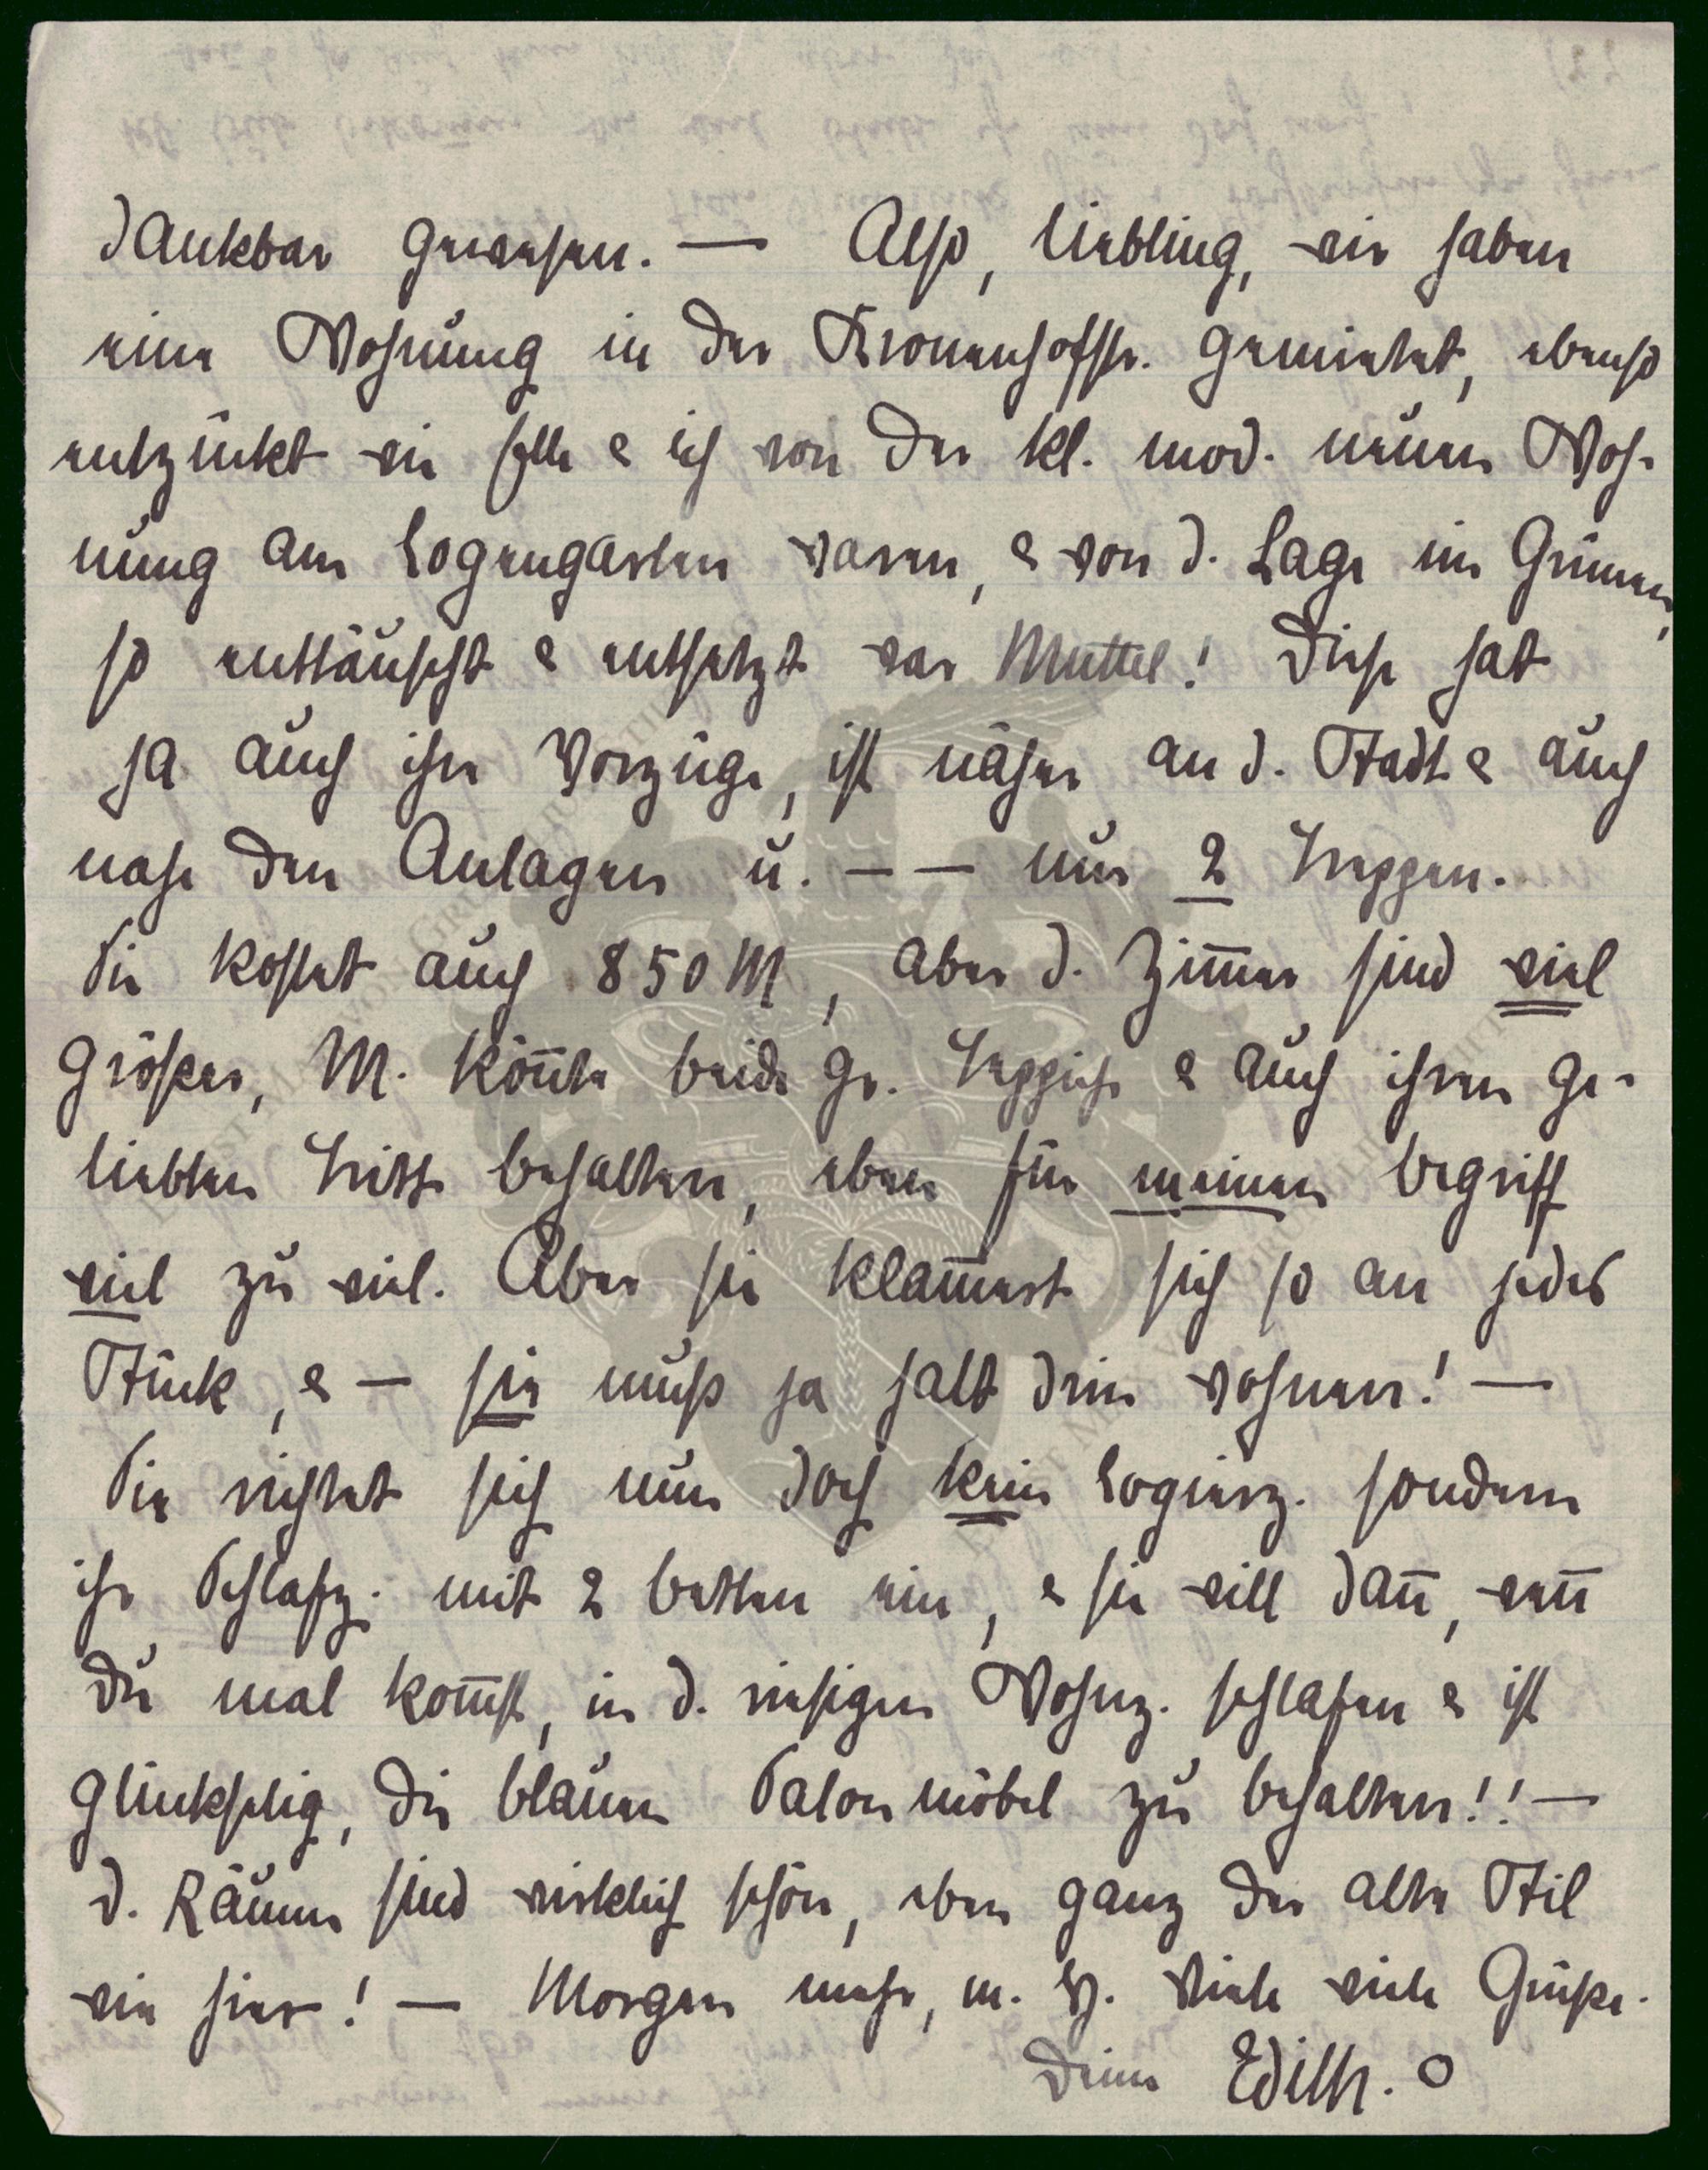 dankbar gewesen. — Also, Liebling, wir haben
eine Wohnung in der Kronenhofstr. gemietet, ebenso
entzückt wie Elle & ich von der kl. mod. neuen Woh-
nung am Logengarten waren, & von d. Lage im Grünen,
so enttäuscht & entsetzt war Muttel! Diese hat
ja auch ihre Vorzüge, ist näher an d. Stadt & auch
nahe den Anlagen u. — — nur 2 Treppen.
Sie kostet auch 850 M, aber d. Zim̅er sind viel
größer, M. kön̅te beide gr. Teppiche & auch ihren ge-
liebten Tritt behalten, eben für meinen Begriff
viel zu viel. Aber sie klam̅ert sich so an jedes
Stück, & — sie muß ja halt drin wohnen! —
Sie richtet sich nun doch kein Logierz. sondern
ihr Schlafz. mit 2 Betten ein, & sie will dan̅, wen̅
Du mal kom̅st, in d. riesigen Wohnz. schlafen & ist
glückselig, die blauen Salonmöbel zu behalten!! —
d. Räume sind wirklich schön, eben ganz der alte Stil
wie hier! — Morgen mehr, m. H. Viele viele Grüße.
Deine Edith. O